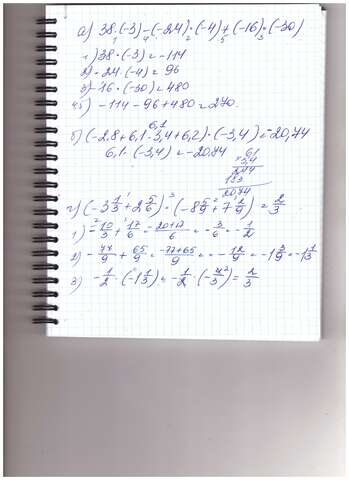 а) 38·(-3)-(-24)·(-4)+(-16)·(-30)
1) 38·(-3)=-114
2) -24·(-4)=96
3) -16·(-30)=480
4,5) -114-96+480=270.
6,1
б) (-2,8+6,1-3,4+6,2)·(-3,4)=-20,74
6,1·(-3,4)=-20,74
6,1
3,4
244
183
20,74
г) (-3 1/3+2 5/6)·(-8 5/9+7 2/9)=2/3
1) -10/3+17/6=-20+17/6=-3/6=-1/2
2) -77/9+65/9=-77+65/9=-12/9=-1 3/9=-1 1/3
3) -1/2·(-1 1/3)=-1/2·(-4/3)=2/3